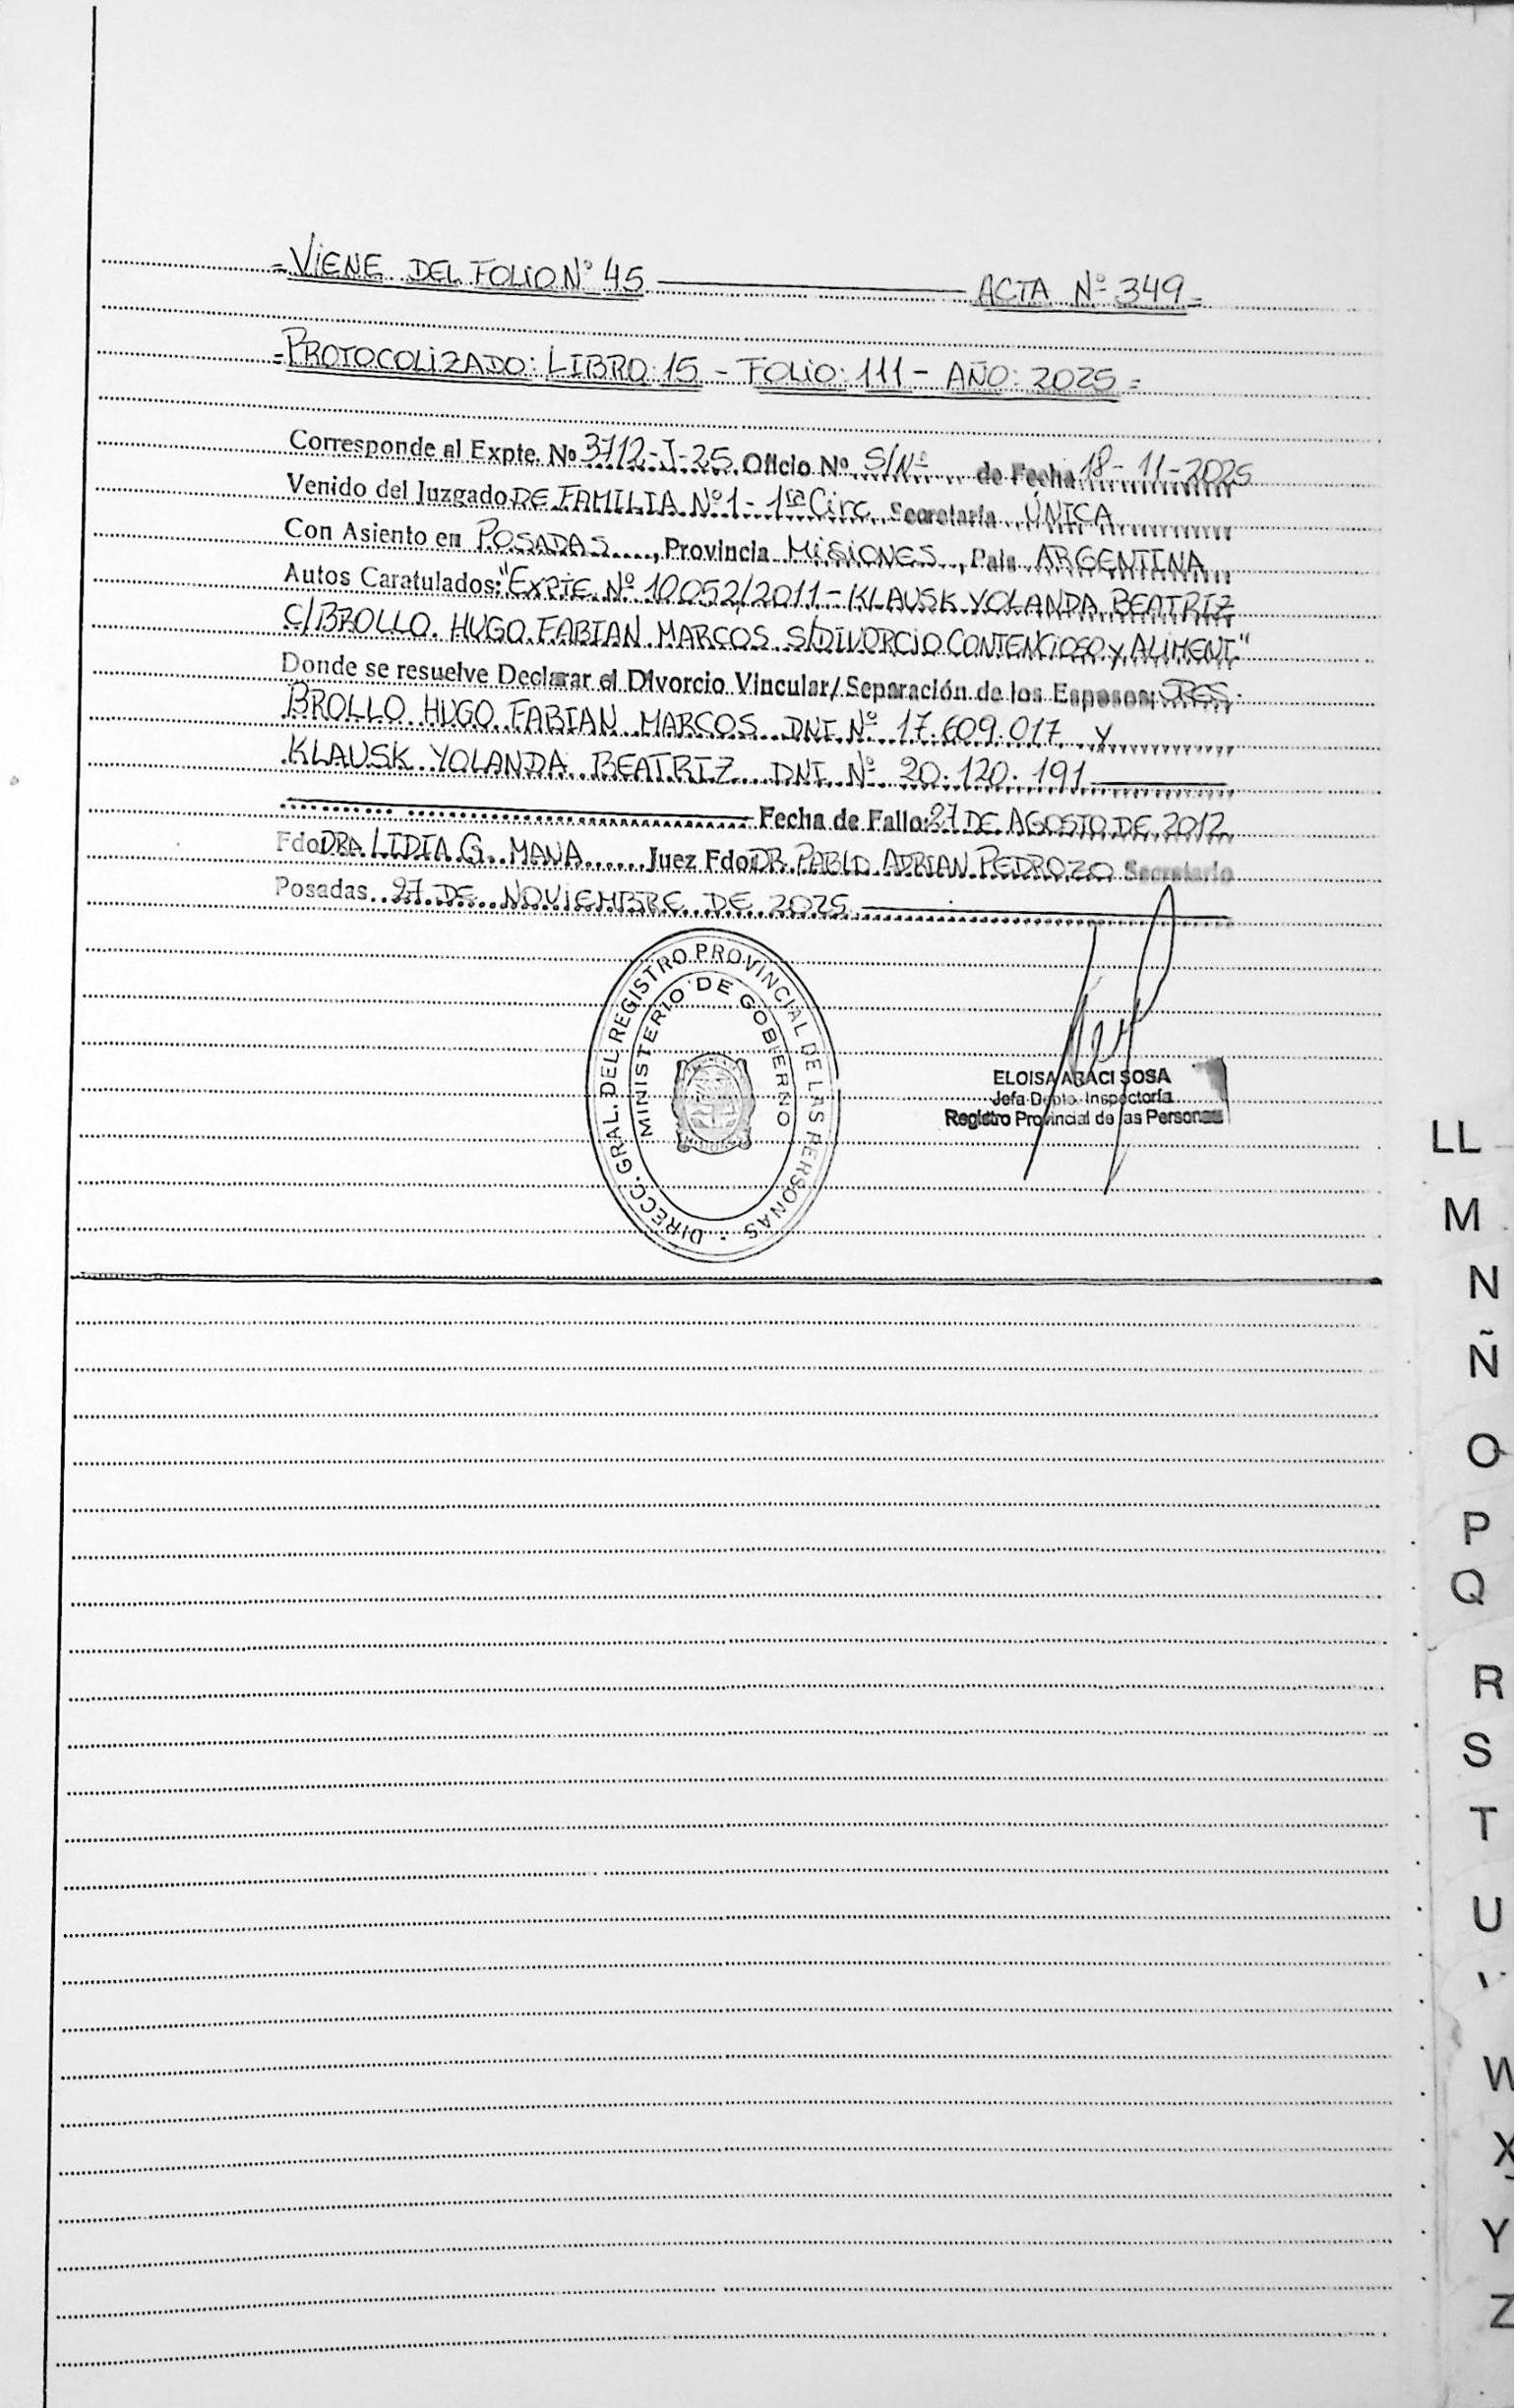 =VIENE DEL FOLIO Nº 45 ACTA Nº 349=
=PROTOCOLIZADO: LIBRO: 15 - FOLIO: 111 - AÑO: 2025=
Corresponde al Expte. Nº 3712-J-25 Oficio Nº S/Nº de Fecha 18-11-2025
Venido del Juzgado DE FAMILIA Nº 1 - 1ra Circ. Secretaría ÚNICA
Con Asiento en POSADAS, Provincia MISIONES, País ARGENTINA
Autos Caratulados: "EXPTE. Nº 10052/2011 - KLAUSK YOLANDA BEATRIZ
C/BROLLO HUGO FABIAN MARCOS S/DIVORCIO CONTENCIOSO Y ALIMENT."
Donde se resuelve Declarar el Divorcio Vincular/Separación de los Esposos: SRES.
BROLLO HUGO FABIAN MARCOS DNI Nº 17.609.017 Y
KLAUSK YOLANDA BEATRIZ DNI Nº 20.120.191
Fecha de Fallo: 27 DE AGOSTO DE 2012
Fdo DRA LIDIA G. MANA Juez Fdo: DR. PABLO ADRIAN PEDROZO Secretario
Posadas 27 DE NOVIEMBRE DE 2025
DIRECC. GRAL. DEL REGISTRO PROVINCIAL DE LAS PERSONAS
MINISTERIO DE GOBIERNO
ELOISA ARACI SOSA
Jefa Depto. Inspectoría
Registro Provincial de las Personas
LL
M
N
Ñ
O
P
Q
R
S
T
U
W
X
Y
Z